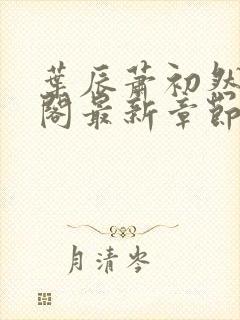 葉辰蕭初然
閣最新章節
月清岑